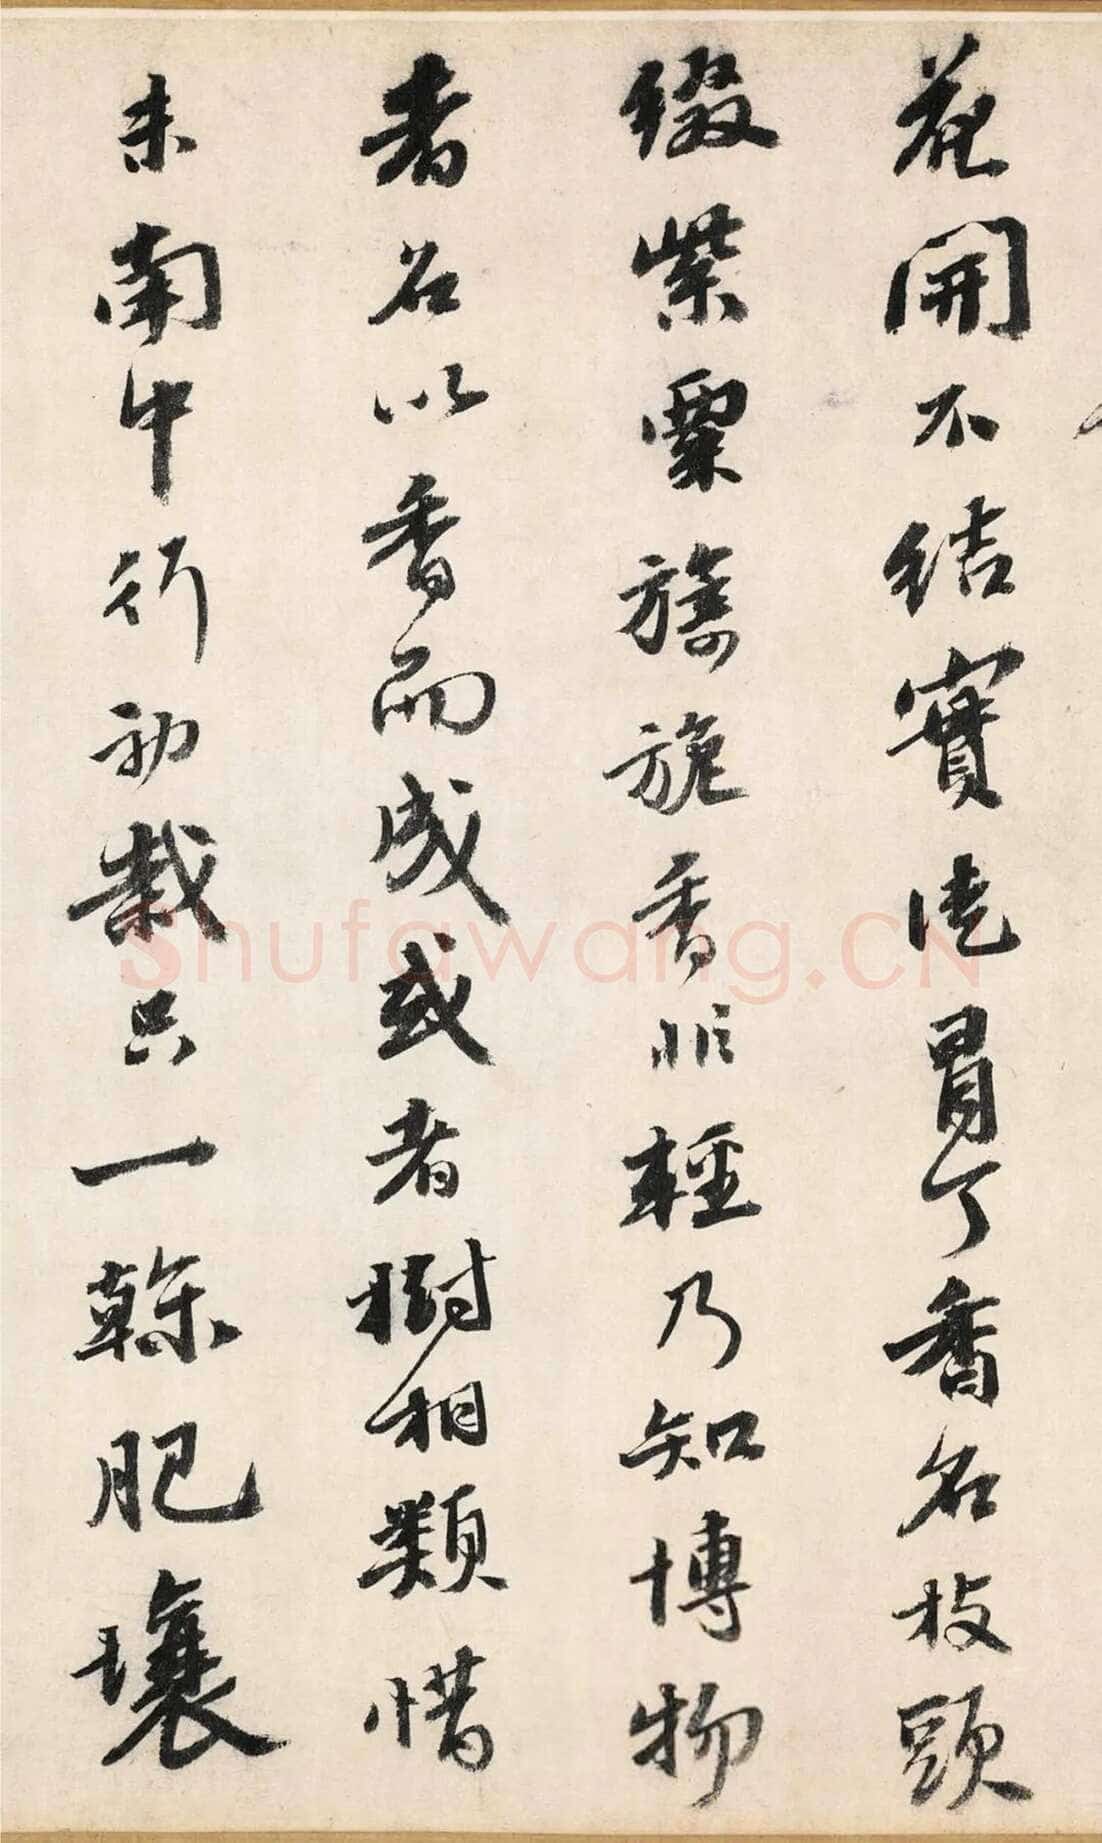 花開不結實徒冒丁香名枝頭
綴紫粟旖旎香非輕乃知博物
者名以香而成或者樹相類惜
未南中行初栽只一榦肥壤
Shufawang.CN